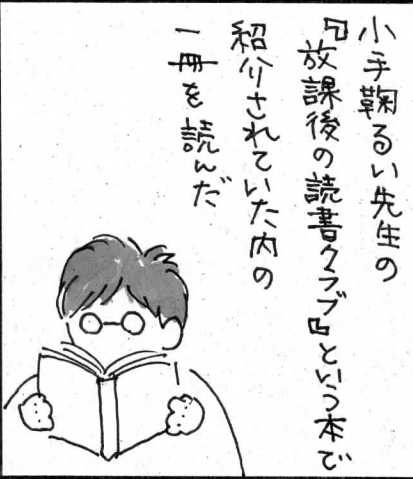 小手鞠るい先生の
『放課後の読書クラブ』という本で
紹介されていた内の
一冊を読んだ